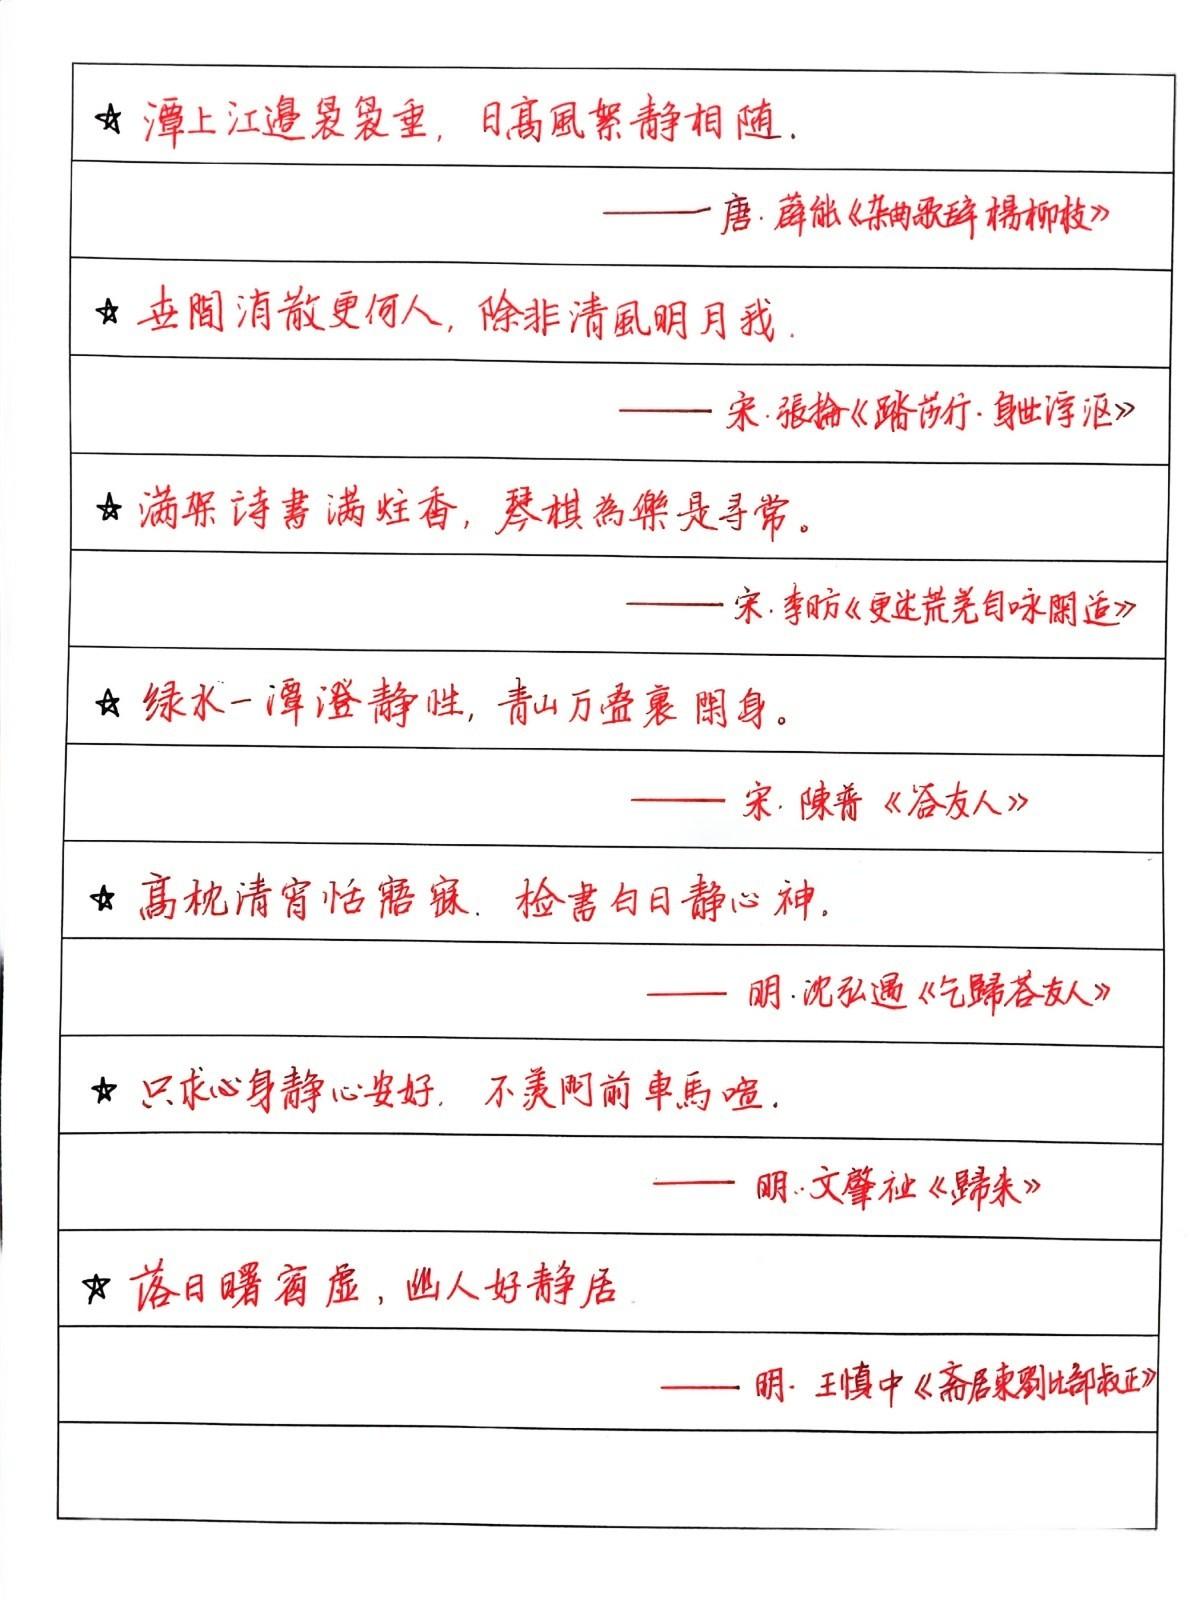 ☆ 潭上江邊裊裊垂，日高風絮静相随.
——唐·薛能《杂曲歌辞 楊柳枝》
☆ 世間消散更何人，除非清風明月我.
——宋·張掄《踏莎行·身世浮沤》
☆ 满架诗書满炷香，琴棋為樂是寻常。
——宋·李昉《更述荒芜自咏閑适》
☆ 绿水一潭澄静性，青山万叠裏閑身。
——宋·陳普《答友人》
☆ 高枕清宵恬寤寐. 检書白日静心神.
——明·沈弘遇《乞歸答友人》
☆ 只求心身静心安好. 不羡門前車馬喧.
——明·文肇祉《歸来》
☆ 落日曙窗虚，幽人好静居
——明·王慎中《斋居柬劉比部叔正》